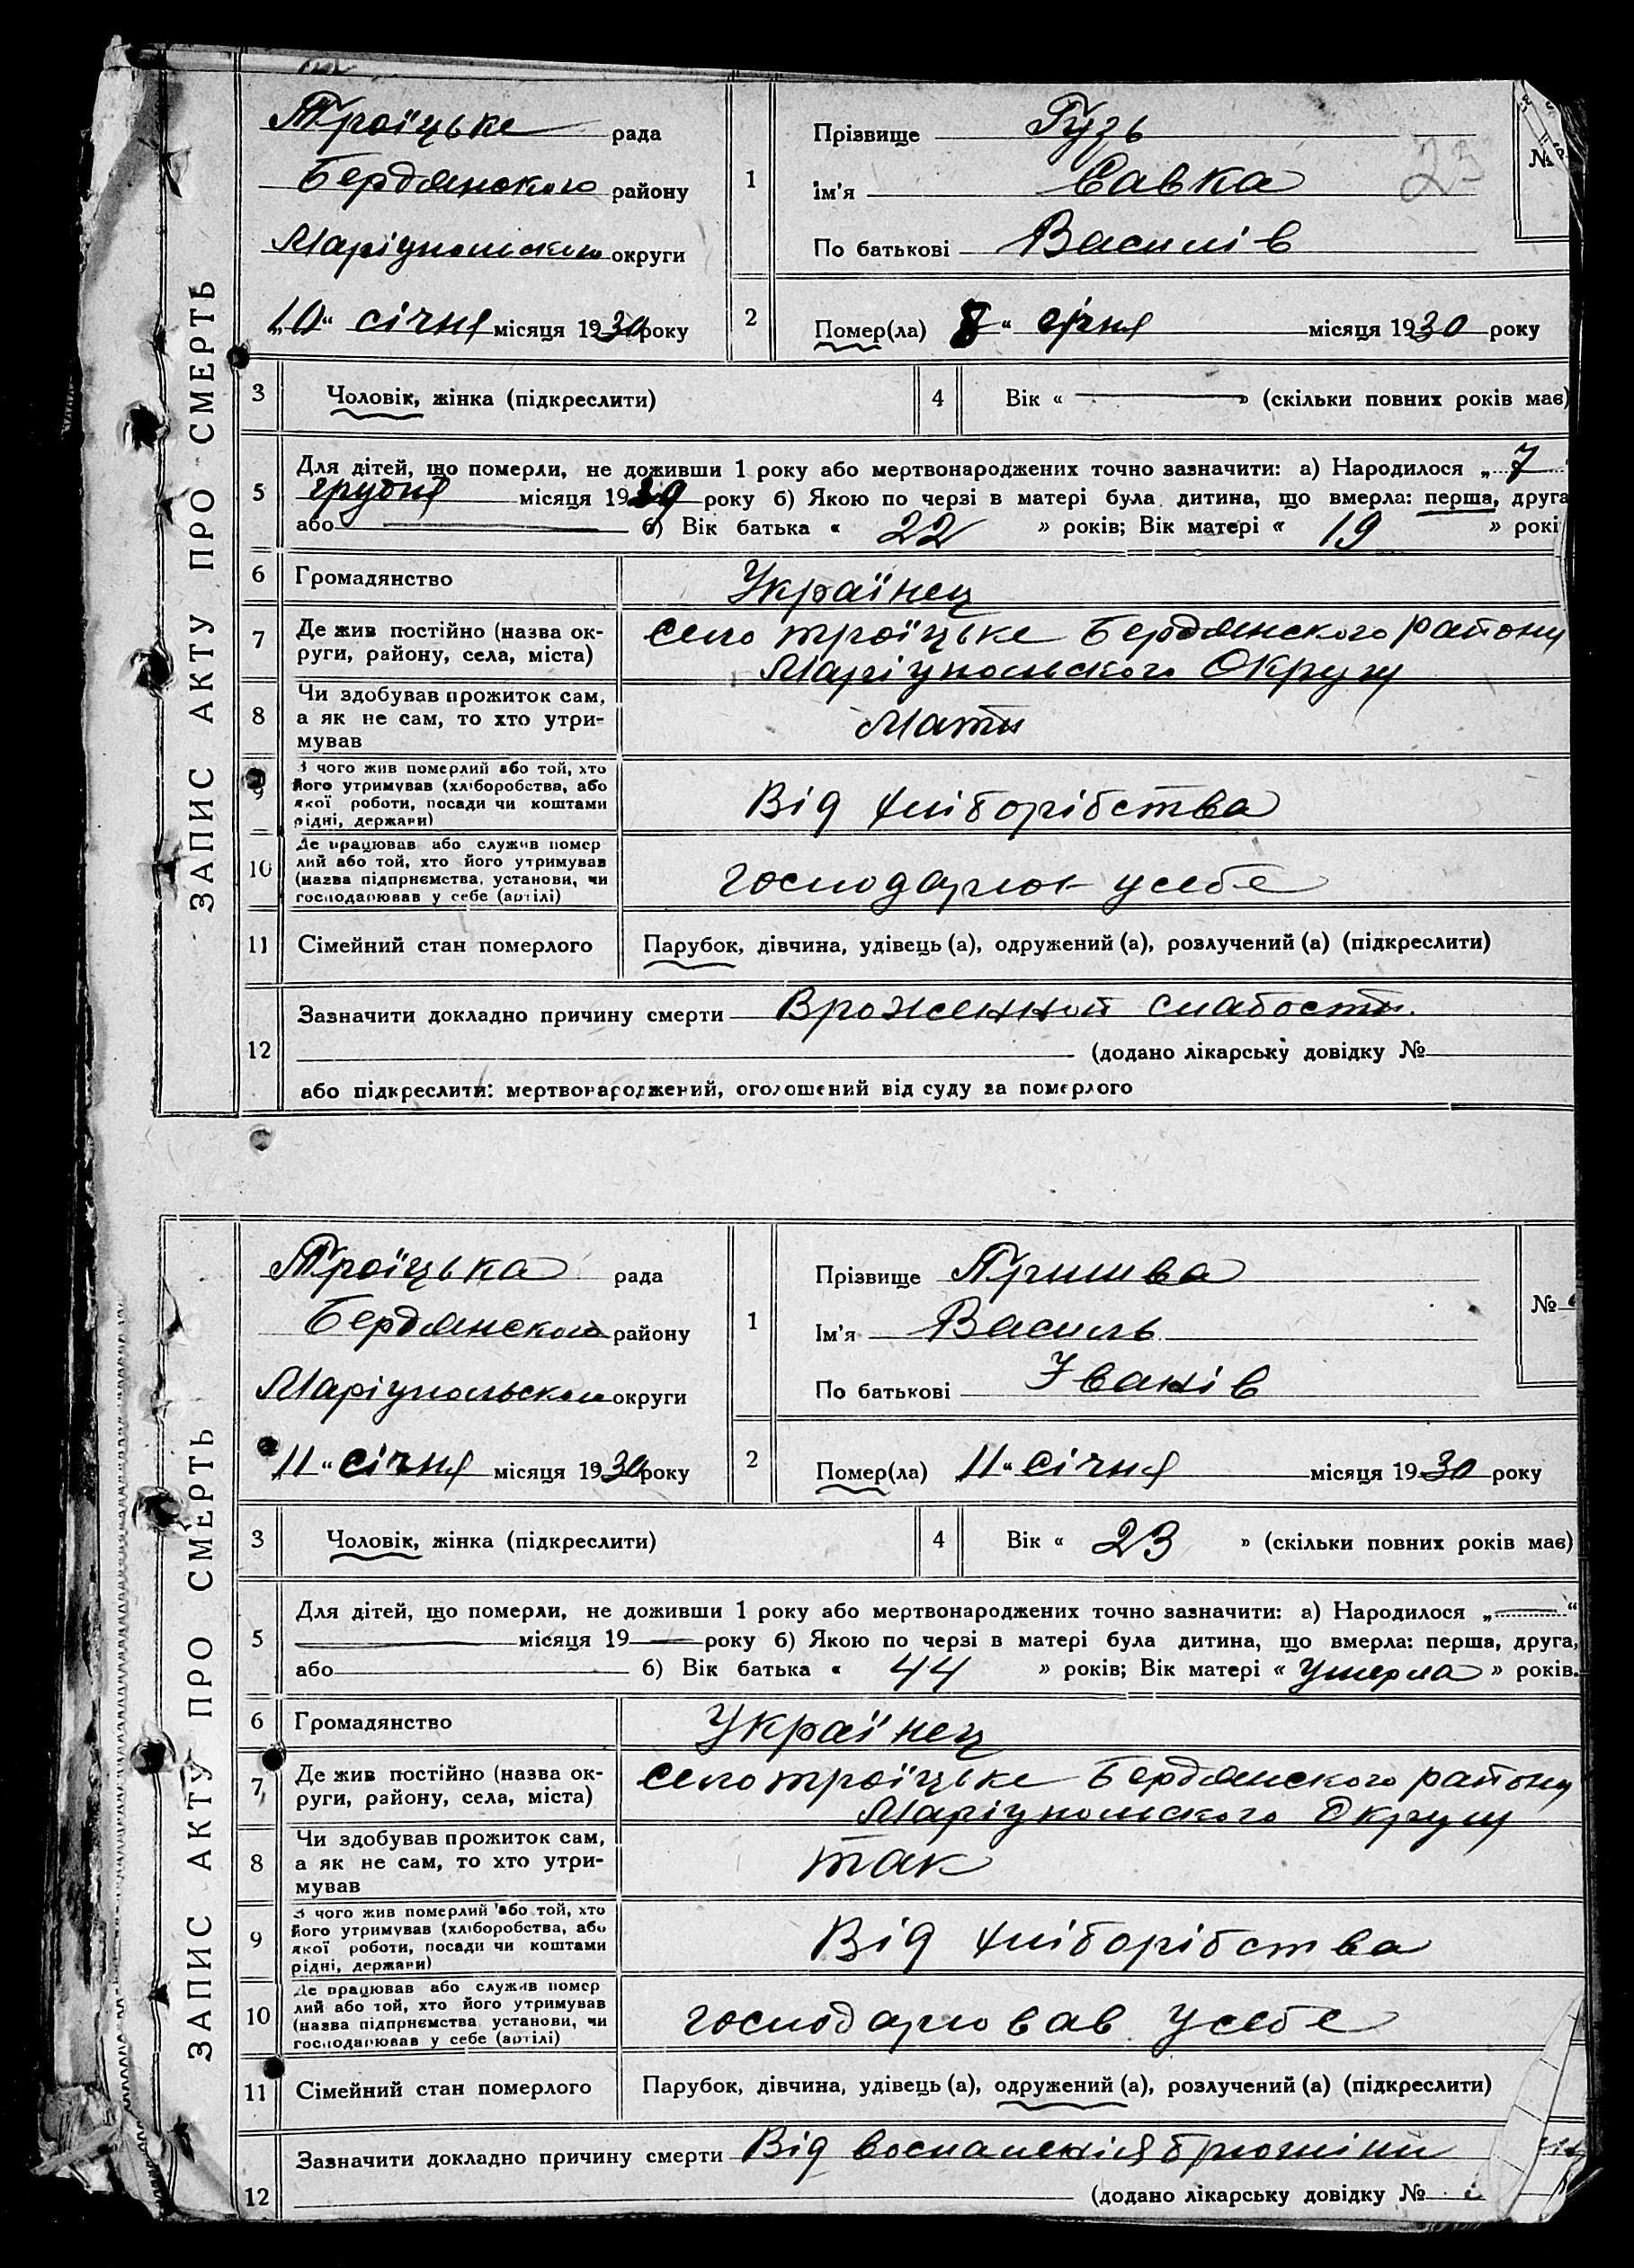 ЗАПИС АКТУ ПРО СМЕРТЬ
Троїцьке рада
Бердянского району
Маріупольского округи
„10“ січня місяця 1930 року
1
Прізвище Гузь
Ім'я Савка
По батькові Василів
23
№
2
Помер(ла) 8“ січня місяця 1930 року
3 Чоловік, жінка (підкреслити)
4 Вік «—» (скільки повних років має)
5 Для дітей, що померли, не доживши 1 року або мертвонароджених точно зазначити: а) Народилося „7
грудня місяця 1929 року б) Якою по черзі в матері була дитина, що вмерла: перша, друга
або — в) Вік батька « 22 » років; Вік матері « 19 » рокі
6 Громадянство Українец
7 Де жив постійно (назва ок-
руги, району, села, міста)
село троїцьке Бердянского району
Маріупольского Округу
8 Чи здобував прожиток сам,
а як не сам, то хто утри-
мував
Мати
9 З чого жив померлий або той, хто
його утримував (хліборобства, або
якої роботи, посади чи коштами
рідні, держави)
Від хліборібства
10 Де працював або служив помер
лий або той, хто його утримував
(назва підприємства, установи, чи
господарював у себе (артілі)
господарює усебе
11 Сімейний стан померлого Парубок, дівчина, удівець (а), одружений (а), розлучений (а) (підкреслити)
12 Зазначити докладно причину смерти Врожденной слабости.
(додано лікарську довідку №
або підкреслити: мертвонароджений, оголошений від суду за померлого
ЗАПИС АКТУ ПРО СМЕРТЬ
Троїцька рада
Бердянского району
Маріупольского округи
11“ січня місяця 1930 року
1
Прізвище Прилива
Ім'я Василь
По батькові Іванів
№
2
Помер(ла) 11“ січня місяця 1930 року
3 Чоловік, жінка (підкреслити)
4 Вік « 23 » (скільки повних років має)
5 Для дітей, що померли, не доживши 1 року або мертвонароджених точно зазначити: а) Народилося „—“
— місяця 19— року б) Якою по черзі в матері була дитина, що вмерла: перша, друга,
або — в) Вік батька « 44 » років; Вік матері « умерла » років.
6 Громадянство Українец
7 Де жив постійно (назва ок-
руги, району, села, міста)
село троїцьке Бердянского району
Маріупольского Округу
8 Чи здобував прожиток сам,
а як не сам, то хто утри-
мував
так
9 З чого жив померлий або той, хто
його утримував (хліборобства, або
якої роботи, посади чи коштами
рідні, держави)
Від хліборібства
10 Де працював або служив помер
лий або той, хто його утримував
(назва підприємства установи, чи
господарював у себе (артілі)
господарював усебе
11 Сімейний стан померлого Парубок, дівчина, удівець (а), одружений (а), розлучений (а) (підкреслити)
12 Зазначити докладно причину смерти Від воспаленія брюшіни
(додано лікарську довідку №